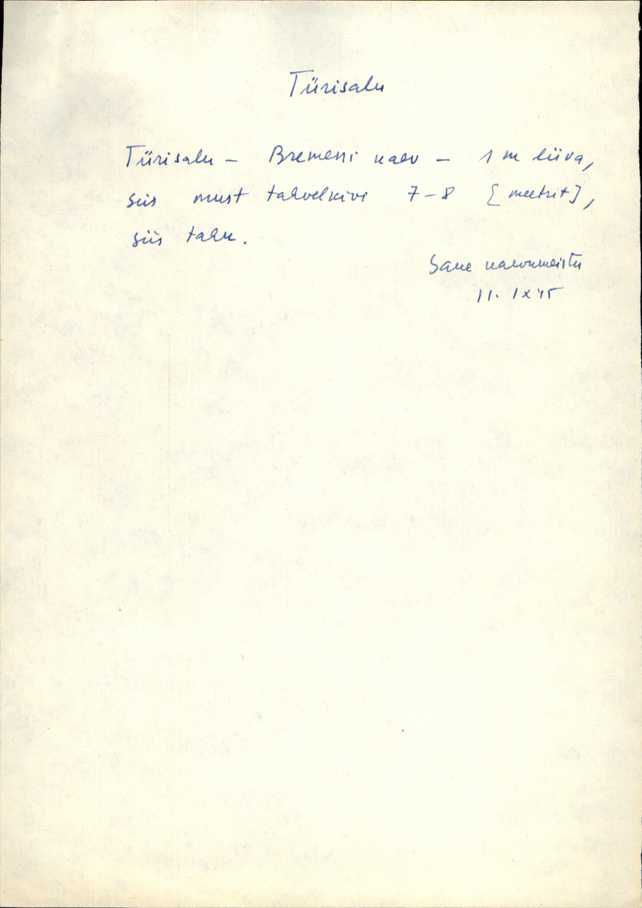 Türisalu
Türisalu – Bremeni kaev – 1 m liiva,
siis must tahvelkivi 7–8 [meetrit],
siis tahu.
Saue kaevumeister
11. IX 45